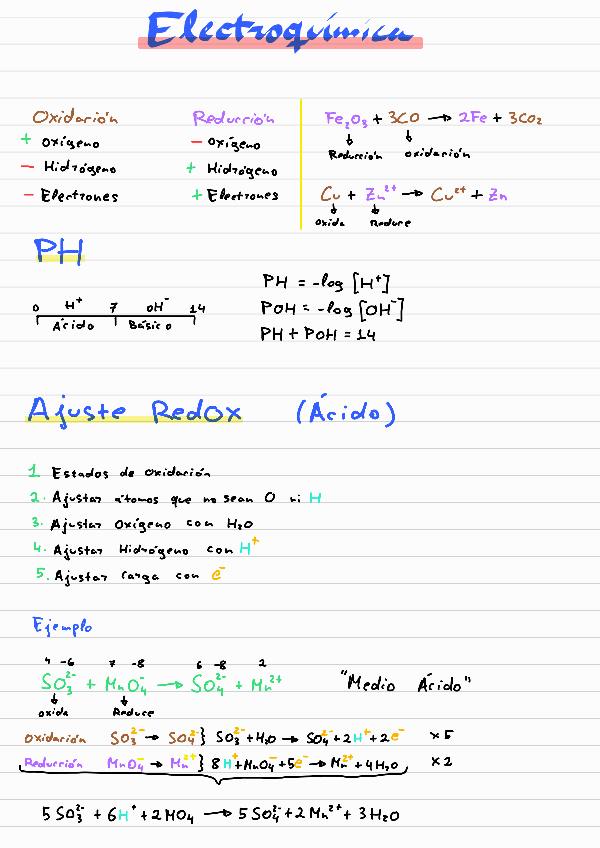 Electroquímica
Oxidación
+ oxígeno
- Hidrógeno
- Electrones
Reducción
- oxígeno
+ Hidrógeno
+ Electrones
Fe₂O₃ + 3CO → 2Fe + 3CO₂
Reducción oxidación
Cu + Zn²⁺ → Cu²⁺ + Zn
oxida Reduce
PH
0 H⁺ 7 OH⁻ 14
Ácido Básico
PH = -log [H⁺]
POH = -log [OH⁻]
PH + POH = 14
Ajuste Redox (Ácido)
1 Estados de oxidación
2. Ajustar átomos que no sean O ni H
3. Ajustar Oxígeno con H₂O
4. Ajustar Hidrógeno con H⁺
5. Ajustar Carga con e⁻
Ejemplo
4 -6 7 -8 6 -8 2
SO₃²⁻ + MnO₄⁻ → SO₄²⁻ + Mn²⁺ "Medio Ácido"
oxida Reduce
Oxidación SO₃²⁻ → SO₄²⁻ } SO₃²⁻ + H₂O → SO₄²⁻ + 2H⁺ + 2e⁻ x5
Reducción MnO₄⁻ → Mn²⁺ } 8H⁺ + MnO₄⁻ + 5e⁻ → Mn²⁺ + 4H₂O x2
5SO₃²⁻ + 6H⁺ + 2MO₄ → 5SO₄²⁻ + 2Mn²⁺ + 3H₂O